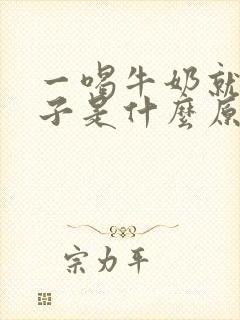 一喝牛奶就
子是什麼原
宗力平